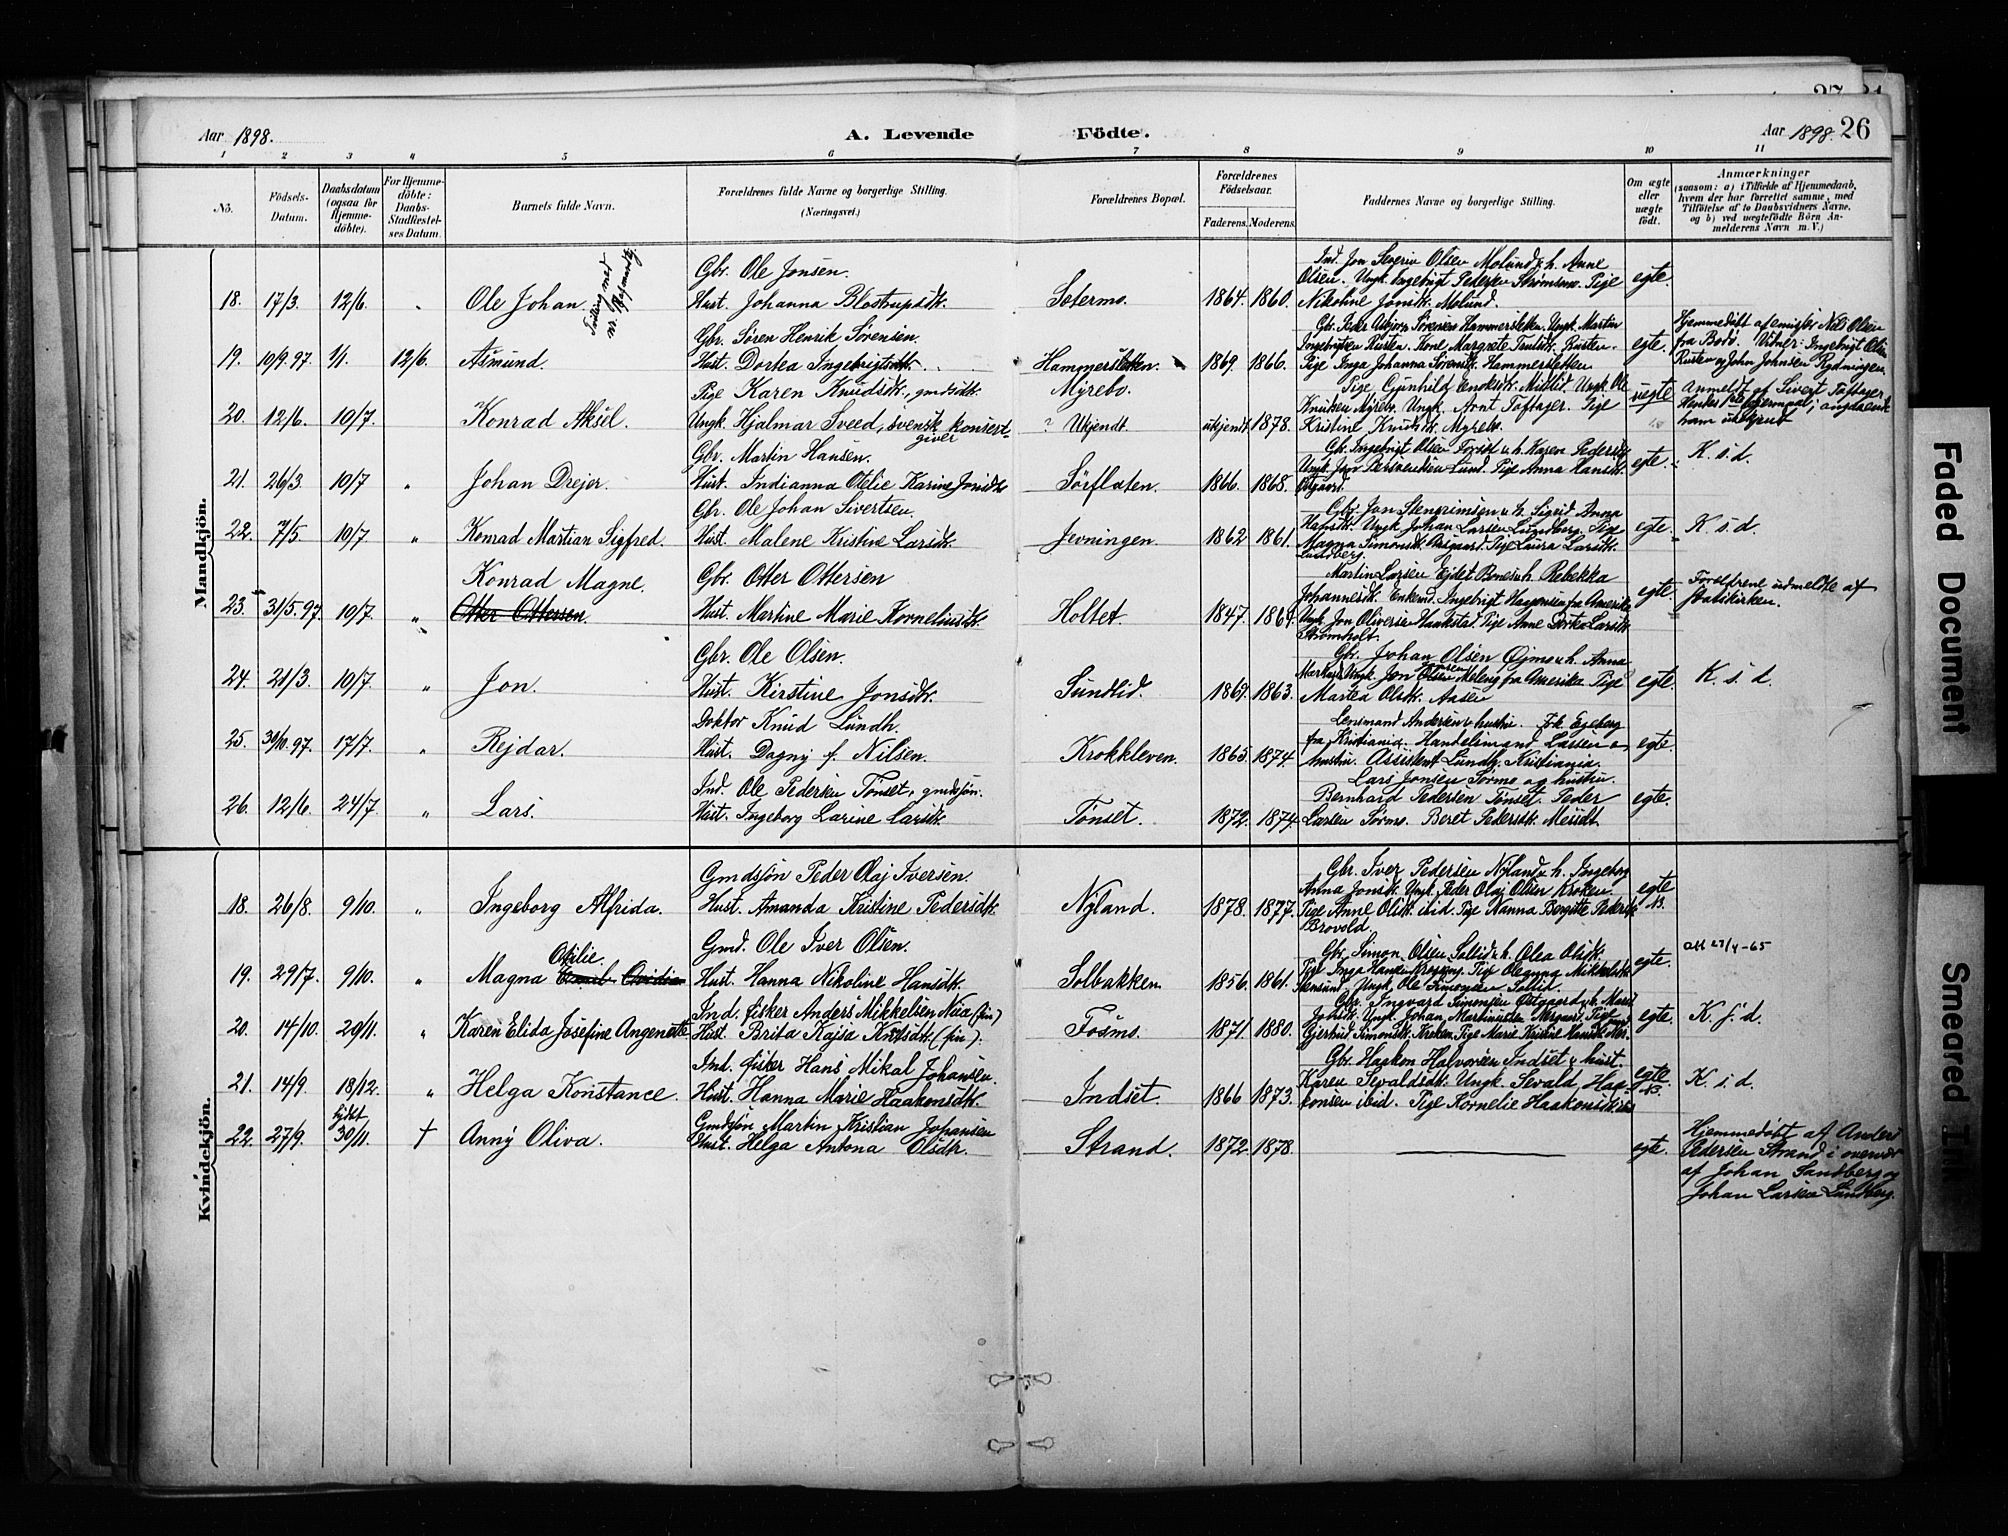 Aar 1898.
A. Levende Födte.
Aar 1898. 26
1 2 3 4 5 6 7 8 9 10 11
Nö.
Födsels-Datum.
Daabsdatum (ogsaa för Hjemme-döbte).
For Hjemme-döbte: Daabs-Stadfæstel-ses Datum.
Barnets fulde Navn.
Forældrenes fulde Navne og borgerlige Stilling.
(Næringsvei.)
Forældrenes Bopæl.
Forældrenes Födselsaar.
Faderens. Moderens.
Faddernes Navne og borgerlige Stilling.
Om ægte eller uægte födt.
Anmærkninger
(saasom: a) i Tilfælde af Hjemmedaab, hvem der har forrettet samme, med Tilföielse af to Daabsvidners Navne, og b) ved uægtefödte Börn Anmelderens Navn m. V.)
Mandkjön.
Gbr. Ole Jonsen.
18. 17/3. 12/6. " Ole Johan. Tvilling med nr.
Hust. Johanna Blostrupsdtr. Sætermo. 1864. 1860.
Ind. Jon Severin Olsen Molund & h. Anne
Olsen. Ungk. Ingebrigt Pedersen Strømsmo. Pige
Nikoline Jonsdtr. Molund.
egte.
Gbr. Søren Henrik Sørensen.
19. 10/9.97. 1/1. 12/6. Asmund.
Hust. Dortea Ingebrigtsdtr. Hammersletten. 1869. 1866.
Gbr. Peder Asbjørn Sørensen Hammersletten. Ungk. Martin
Ingebrigtsen Rusten. Kone Margrete Rusten.
Pige Inga Johanna Sørensdtr. Hammersletten
egte.
Hjemmedøbt af Nils Olsen
fra Bodö. Vitner: Ingebrigt Olsen
Rusten og John Johnsen Rydningen.
Pige Karen Knudsdtr., gmdsdtr. Myrebo.
20. 12/6. 10/7. Konrad Aksel.
Ungk. Hjalmar Sveed, svensk konsert-giver ? Ukjendt ukjendt 1878.
Pige Gunhild Enoksdtr. Midtlid Ungk. Ole
Knutsen Myrebo. Ungk. Arnt Toftager. Pige
Kristine Knudsdtr. Myrebo.
uegte
Anmeldt af Sivert Toftager.
Gbr. Martin Hansen.
21. 26/3. 10/7 " Johan Drejer.
Hust. Indianna Otelie Karine Jonsdtr. Sörflaten. 1866. 1868.
Gbr. Ingebrigt Olsen & h. Karen Pedersdtr.
Lund. Pige Anna Hansdtr.
egte. K. s. d.
Gbr. Ole Johan Sivertsen.
22. 7/5 10/7 " Konrad Martian Sigfred.
Hust. Malene Kristine Larsdtr. Jevningen. 1862 1861.
Gbr. Jon Stengrimsen & h. Sigrid Anna
Hansdtr. Ungk. Johan Larsen Lundberg. Pige
Magna Simonsdtr. Pige Laura Larsdtr.
Lundberg.
egte K. s. d.
Konrad Magne. Gbr. Otter Ottersen
23. 31/5.97. 10/7. " Otter Ottersen.
Hust. Martine Marie Korneliusdtr. Holtet. 1847. 1864.
Martin Larsen Ejdet Bones & h. Rebekka
Johannesdtr. Enkemd. Ingebrigt Haagensen fra Amerika
Ungk. Jon Oliversen Haakstad. Pige Anne Dortea Larsdtr.
Strømholt.
egte.
Forældrene udmeldte af
statskirken.
Gbr. Ole Olsen.
24. 21/3. 10/7. " Jon.
Hust. Kirstine Jonsdtr. Sundlid. 1869. 1863.
Gbr. Johan Olsen Øjmo & h. Anna
Ungk. Jon Meleng fra Amerika Pige
Martea Olsdtr. Aasen
egte. K. s. d.
Doktor Knud Lundh.
25. 30/10.97. 17/7. " Rejdar.
Hust. Dagny f. Nilsen. Krokkleven. 1865. 1874.
Lensmand Andersen & hustru. Frk. Egeberg
fra Kristiania. Handelsmand Larsen &
hustru. Assistent Lundh, Kristiania.
egte.
Ind. Ole Pedersen Tönset, gmdsjön.
26. 12/6. 24/7. " Lars.
Hust. Ingeborg Larine Larsdtr. Tönset. 1872. 1874.
Lars Jonsen Sörmo og hustru.
Bernhard Pedersen Tönset. Peder
Larsen Sörmo. Beret Pedersdtr.
egte.
Kvindekjön.
Gmdsjön Peder Olaj Iversen.
18. 26/8. 9/10. " Ingeborg Alfrida.
Hust. Amanda Kristine Pedersdtr. Nyland. 1878. 1877.
Gbr. Iver Pedersen Nyland & h. Ingeborg
Anna Jonsdtr. Ungk. Peder Olaj Olsen Kroken
Pige Anne Olsdtr. ibid. Pige Nanna Bergitte Pedersdtr.
Brovold.
egte
Otilie. Gmd. Ole Iver Olsen.
19. 29/7. 9/10. " Magna
Hust. Hanna Nikoline Hansdtr. Solbakken 1856. 1861.
Gbr. Simon Olsen Sollid & h. Olea Olsdtr.
Pige Inga Hansen. Pige Olegyna Mikkelsdtr.
Ungk. Ole Simonsen Sollid.
egte. att 27/4-65
Ind. fisker Anders Mikkelsen Näa (fin)
20. 14/10. 20/11. " Karen Elida Josefine Angenete.
Hust. Brita Kajsa (fin). Fosmo. 1871. 1880.
Gbr. Ingvard Simonsen Østgaard & h. Marit
egte. K. s. d.
Ind. fisker Hans Mikal Johansen.
21. 14/9. 18/12. " Helga Konstance.
Hust. Hanna Marie Haakonsdtr. Indset. 1866 1873.
Gbr. Haakon Halvorsen Indset & hust.
Karen Sevaldsdtr. Ungk. Sevald Haa-
konsen ibid. Pige Kornelie Haakonsdtr.
egte K. s. d.
Gmdsjön Martin Kristian Johansen
22. 27/9. 30/11. † Anny Oliva.
Hust. Helga Antona Olsdtr. Strand. 1872. 1878. egte.
Hjemmedøbt af Anders
Pedersen Strand i overvær
af Johan Sandberg og
Johan Larsen Lundberg.
Faded Document
Smeared Ink